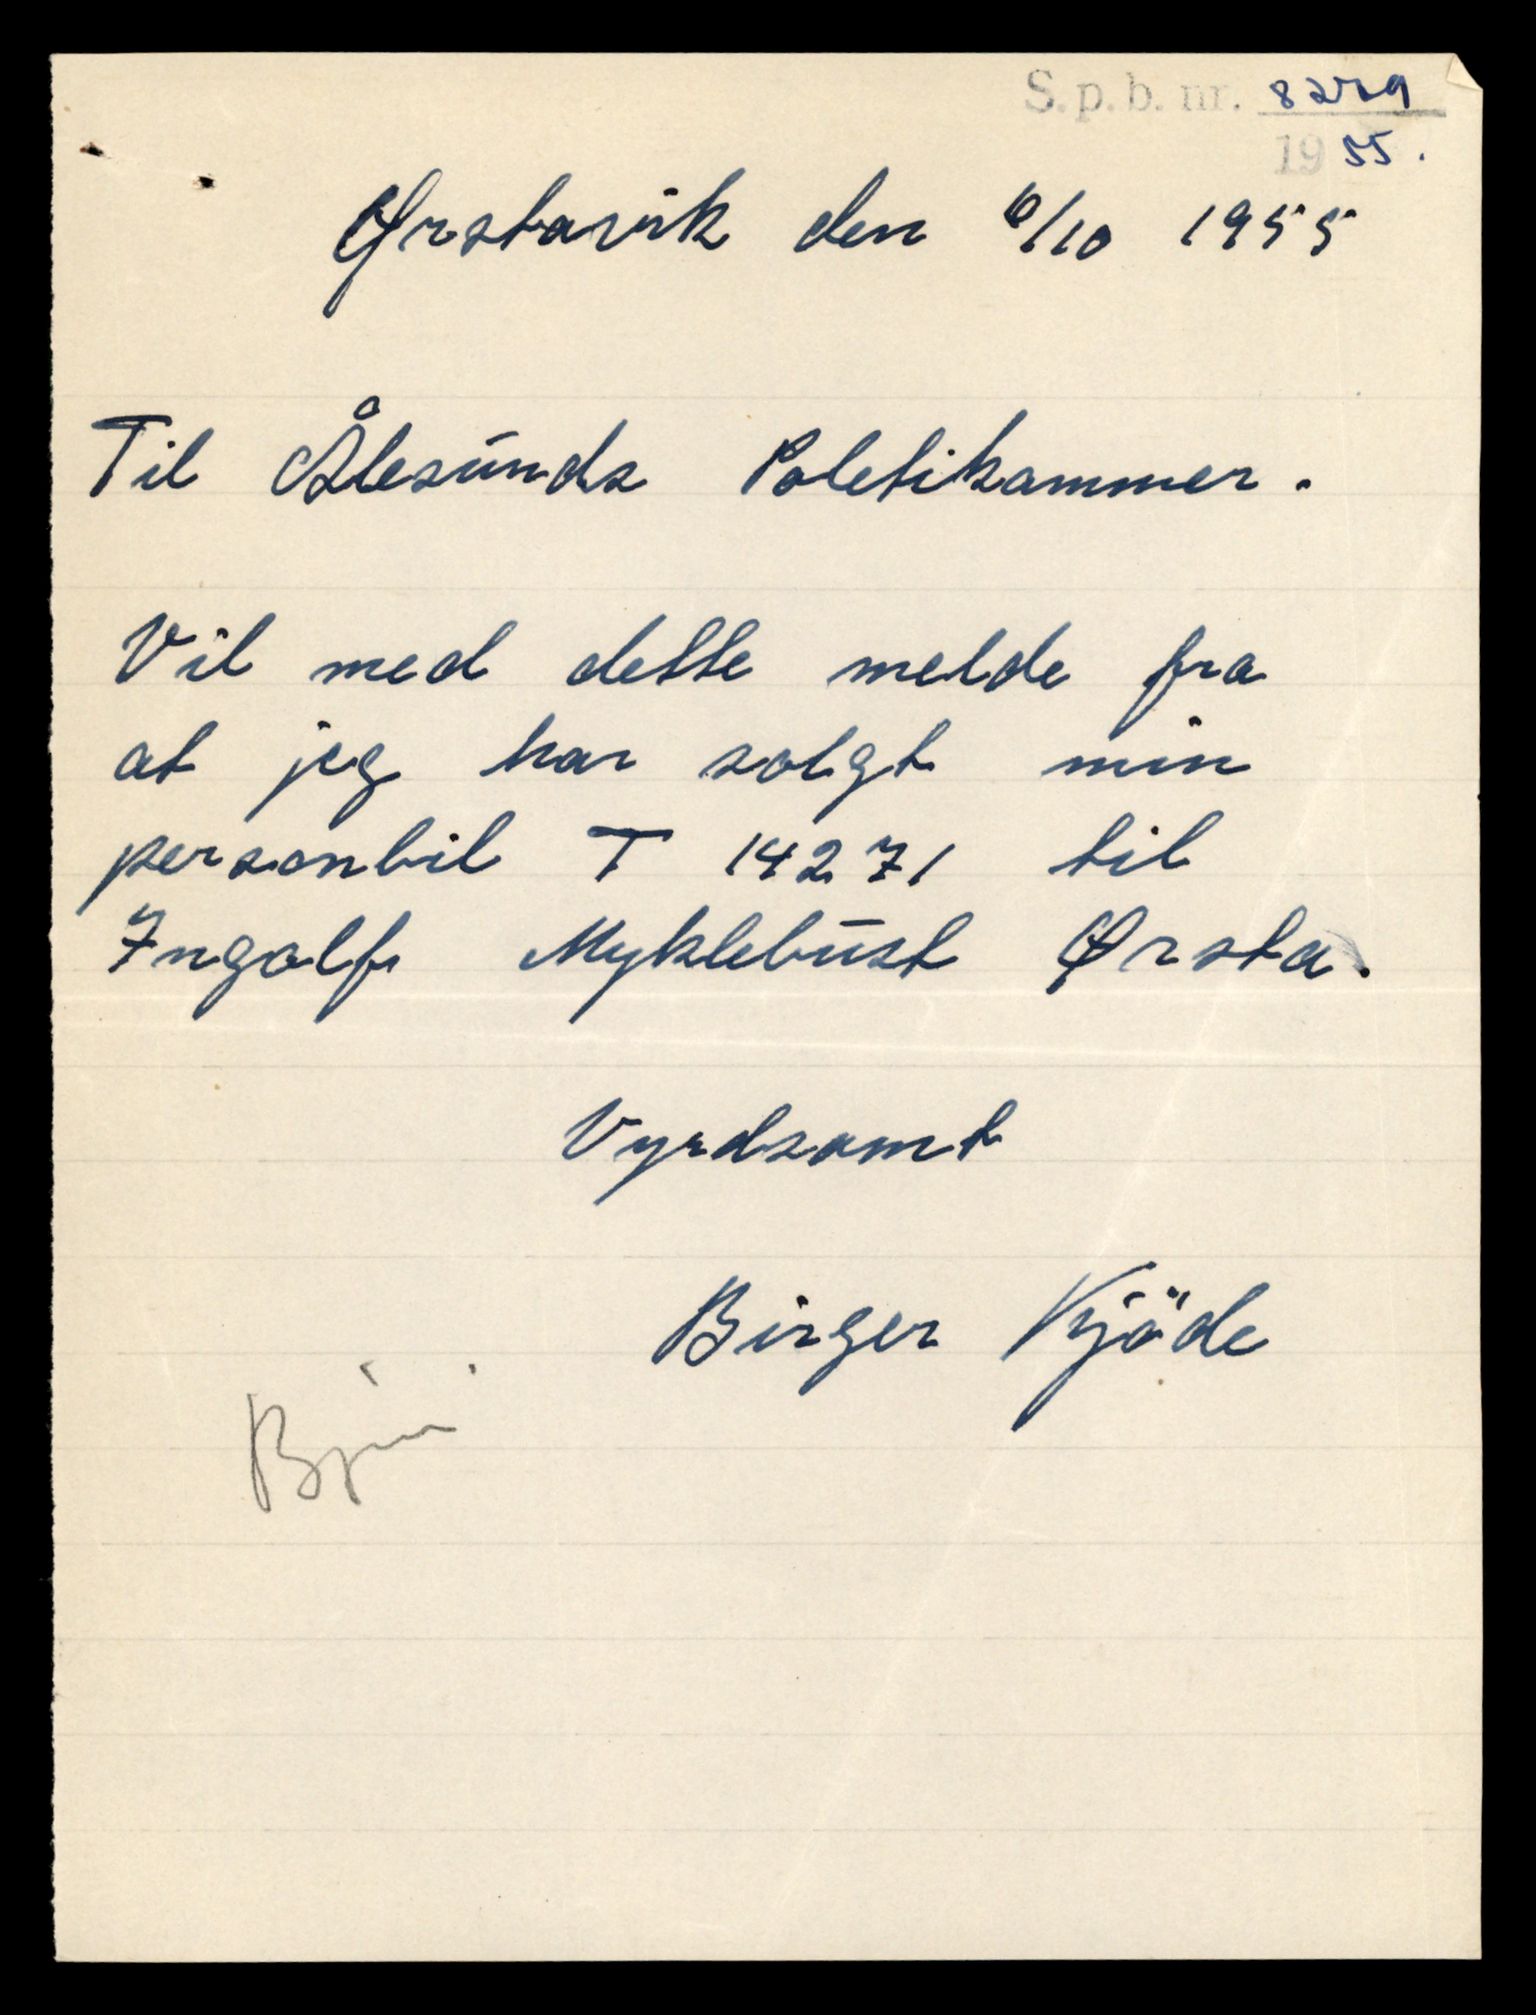 S.p.b. nr. 8279
1955.
Ørstavik den 6/10 1955
Til Ålesunds Poletikammer.
Vil med dette melde fra
at jeg har solgt min
personbil T 14271 til
Ingolf Myklebust Ørsta.
Vyrdsamt
Birger Kjöde